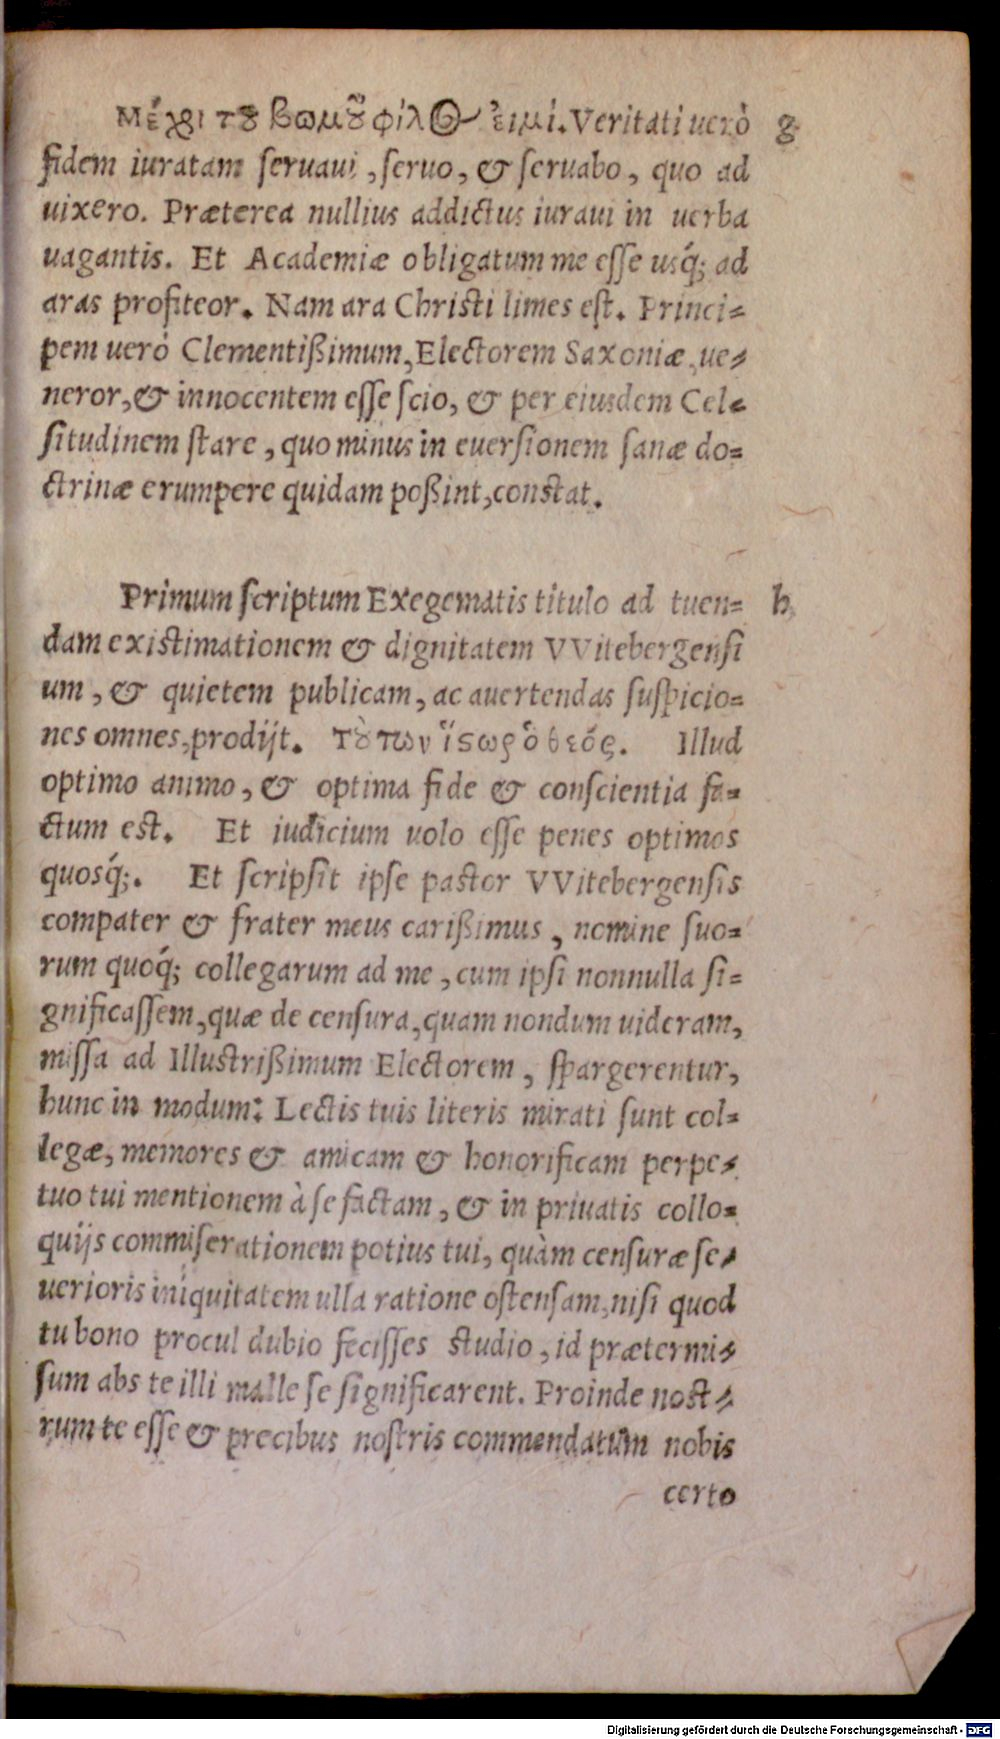 Μέχρι τοῦ βωμοῦ φίλος εἰμί. Veritati uerò g
fidem iuratam ſeruaui, ſeruo, & ſeruabo, quo ad
uixero. Præterea nullius addictus iuraui in uerba
uagantis. Et Academiæ obligatum me eſſe usq́; ad
aras profiteor. Nam ara Chriſti limes eſt. Princi-
pem uerò Clementißimum, Electorem Saxoniæ, ue-
neror, & innocentem eſſe ſcio, & per eiusdem Cel-
ſitudinem ſtare, quo minus in euerſionem ſanæ do-
ctrinæ erumpere quidam poßint, conſtat.
Primum ſcriptum Exegematis titulo ad tuen- h
dam exiſtimationem & dignitatem VVitebergenſi
um, & quietem publicam, ac auertendas ſuſpicio-
nes omnes, prodijt. τούτων ἵστωρ ὁ θεός. Illud
optimo animo, & optima fide & conſcientia fa-
ctum eſt. Et iudicium uolo eſſe penes optimos
quosq́;. Et ſcripſit ipſe paſtor VVitebergenſis
compater & frater meus carißimus, nomine ſuo-
rum quoq́; collegarum ad me, cum ipſi nonnulla ſi-
gnificaſſem, quæ de cenſura, quam nondum uideram,
miſſa ad Illuſtrißimum Electorem, ſpargerentur,
hunc in modum: Lectis tuis literis mirati ſunt col-
legæ, memores & amicam & honorificam perpe-
tuo tui mentionem à ſe factam, & in priuatis collo-
quijs commiſerationem potius tui, quàm cenſuræ ſe-
uerioris iniquitatem ulla ratione oſtenſam, niſi quod
tu bono procul dubio feciſſes ſtudio, id prætermiſ-
ſum abs te illi malle ſe ſignificarent. Proinde noſt-
rum te eſſe & precibus noſtris commendatum nobis
certo
Digitalisierung gefördert durch die Deutsche Forschungsgemeinschaft - DFG